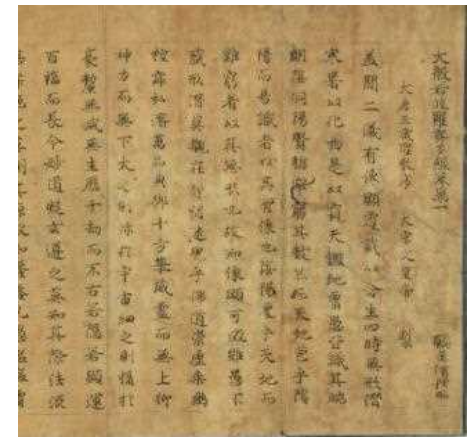 大般若波羅蜜多經卷第一
大唐三藏聖教序 太宗文皇帝 製
蓋聞二儀有像顯覆載以含生四時無形潛
寒暑以化物是以窺天鑑地庸愚皆識其端
明陰洞陽賢哲罕窮其數然而天地苞乎陰
陽而易識者以其有像也陰陽處乎天地而
難窮者以其無形也故知像顯可徵雖愚不
惑形潛莫覩在智猶迷況乎佛道崇虛乘幽
控寂弘濟萬品典御十方舉威靈而無上抑
神力而無下大之則弥於宇宙細之則攝於
豪釐無滅無生歷千劫而不古若隱若顯運
百福而長今妙道凝玄遵之莫知其際法流